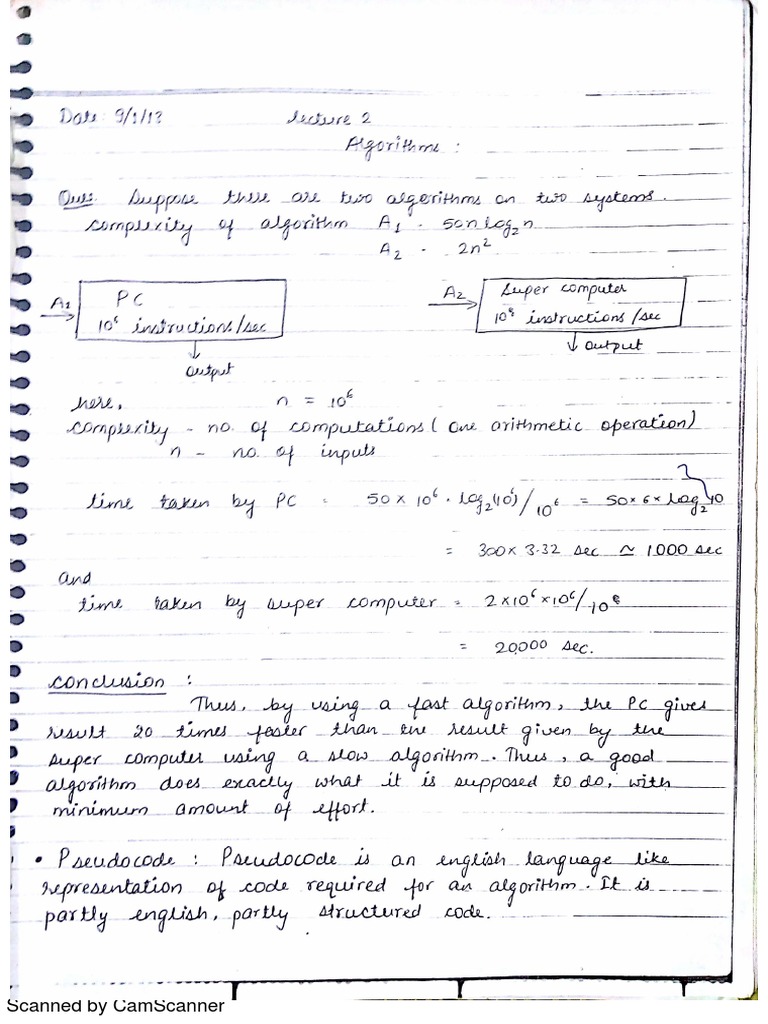 Date: 9/1/13 Lecture 2
Algorithms :
Ques: Suppose there are two algorithms on two systems.
complexity of algorithm A₁ - 50nlog₂n
A₂ - 2n²
A₁ PC A₂ Super computer
10⁶ instructions/sec 10⁸ instructions/sec
output output
here, n = 10⁶
complexity - no. of computations (one arithmetic operation)
n - no. of inputs
time taken by PC = 50 x 10⁶ · log₂(10⁶)/10⁶ = 50 x 6 x log₂10
= 300 x 3.32 sec ≃ 1000 sec
and
time taken by super computer = 2 x 10⁶ x 10⁶/10⁸
= 20,000 sec.
conclusion :
Thus, by using a fast algorithm, the PC gives
result 20 times faster than the result given by the
super computer using a slow algorithm. Thus, a good
algorithm does exactly what it is supposed to do, with
minimum amount of effort.
• Pseudocode : Pseudocode is an english language like
representation of code required for an algorithm. It is
partly english, partly structured code.
Scanned by CamScanner